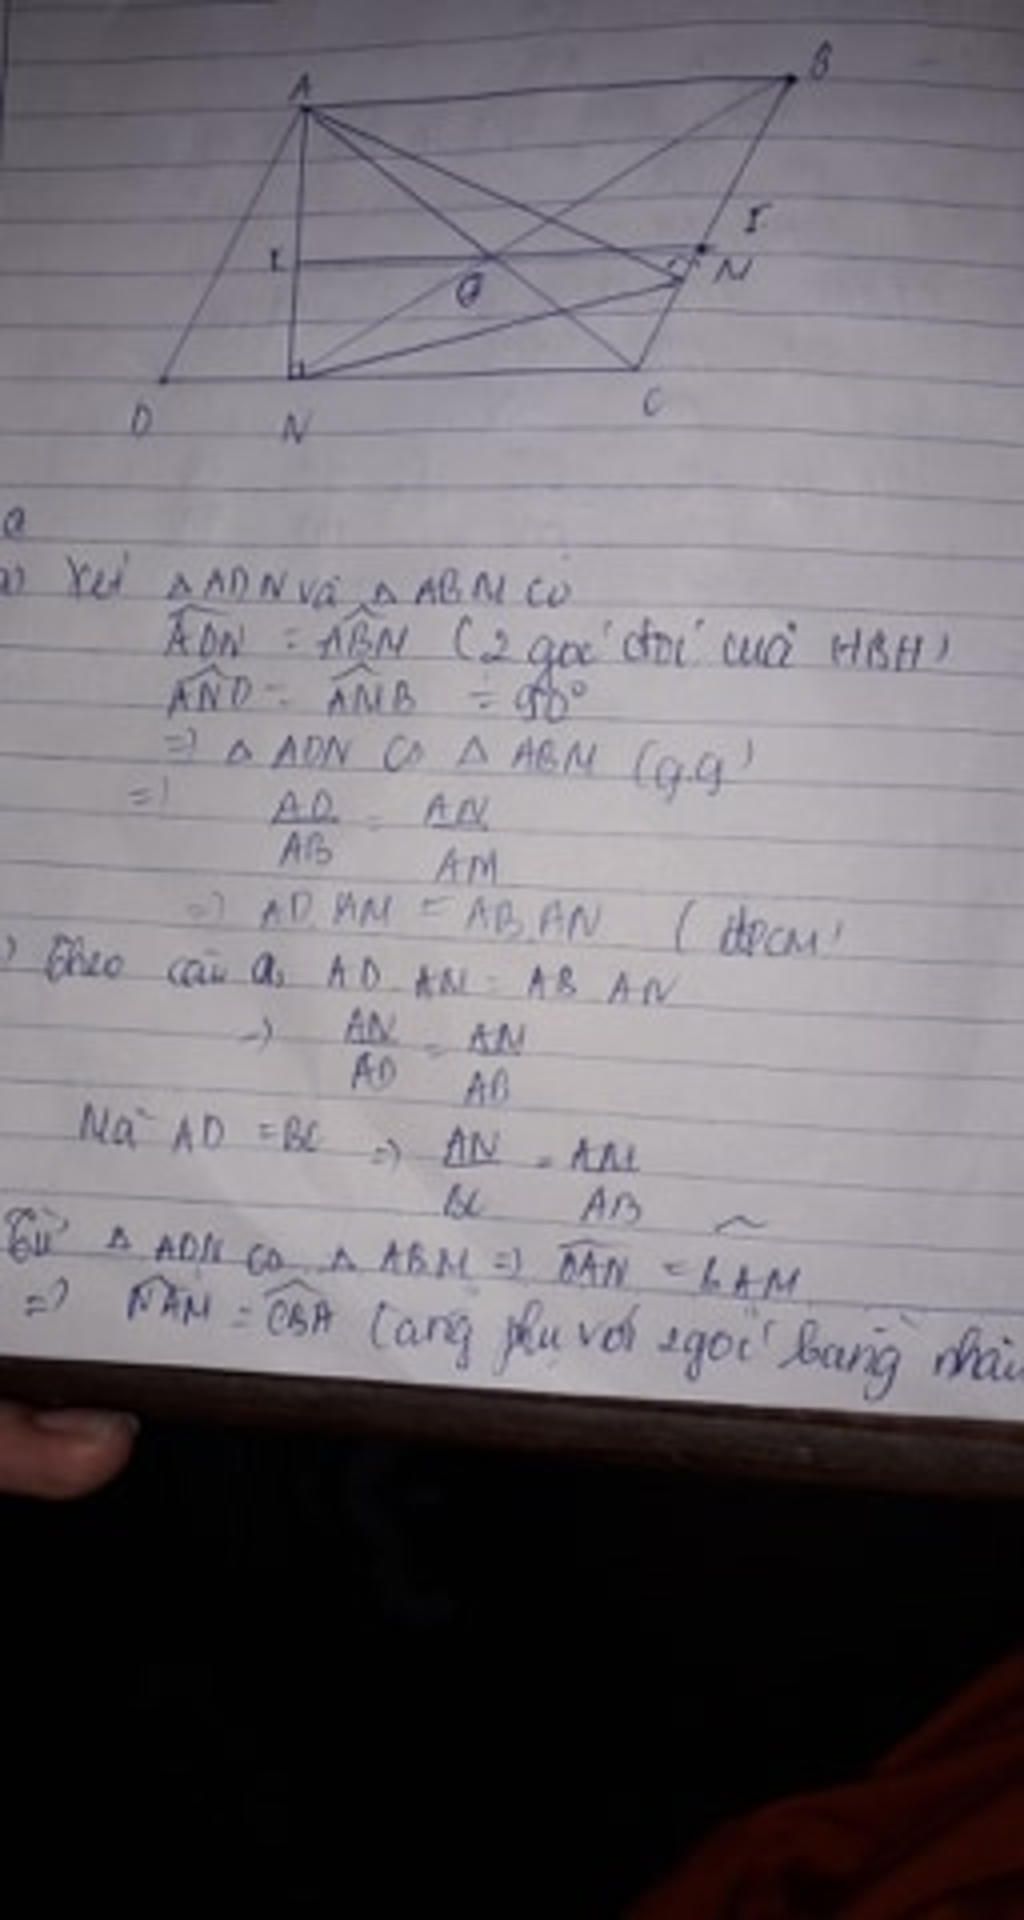 A
B
I
L
N
D
N
C
a
a) Xét △ ADN và △ ABM có
ADN = ABM (2 góc đối của HBH)
AND = AMB = 90°
=> △ ADN ᔕ △ ABM (g.g)
=> AD/AB = AN/AM
=> AD.AM = AB.AN (đpcm)
) Theo câu a, AD AM = AB AN
=> AN/AD = AM/AB
Mà AD = BC => AN/BC = AM/AB
Từ △ ADN ᔕ △ ABM => DAN = BAM
=> NAM = CBA (cùng phụ với 2 góc bằng nhau